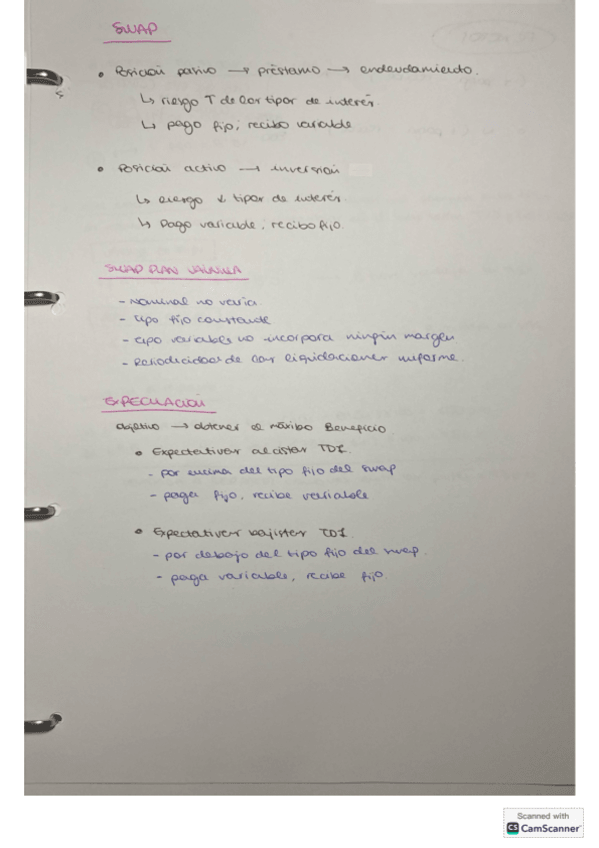 SWAP
• Posición pasivo → préstamo → endeudamiento.
↳ riesgo ↑ de los tipos de interés
↳ pago fijo; recibo variable
• Posición activo → inversión
↳ riesgo ↓ tipos de interés
↳ Pago variable; recibo fijo.
SWAP PLAN VAINILLA
- Nominal no varia.
- tipo fijo constante
- tipo variable no incorpora ningún margen
- Periodicidad de las liquidaciones uniforme.
ESPECULACIÓN
Objetivo → obtener el máximo Beneficio.
• Expectativas alcistas TDI.
- por encima del tipo fijo del swap
- paga fijo, recibe variable
• Expectativas bajistas TDI.
- por debajo del tipo fijo del swap.
- paga variable, recibe fijo.
Scanned with
CS CamScanner